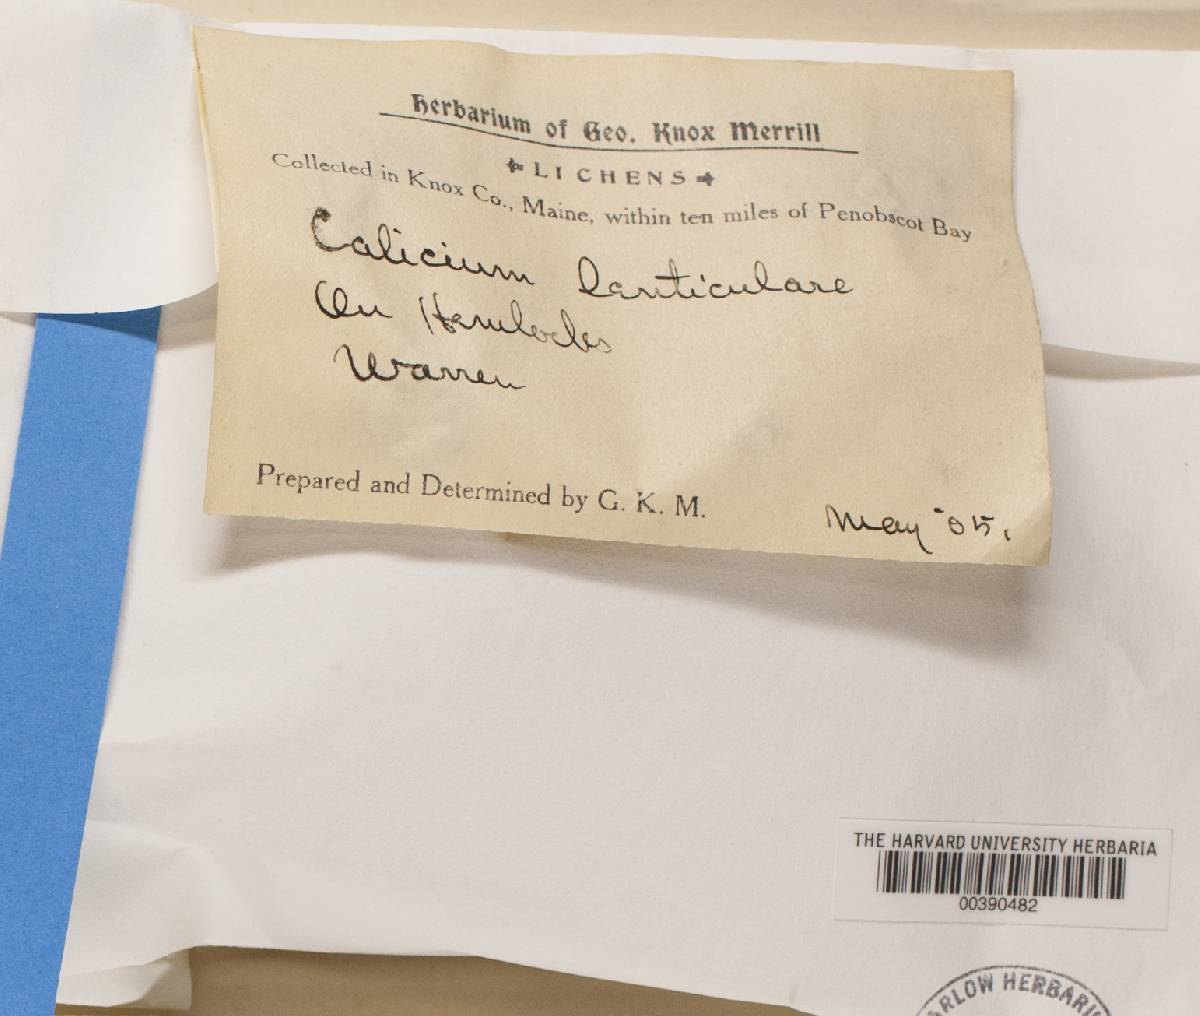 Herbarium of Geo. Knox Merrill
LICHENS
Collected in Knox Co., Maine, within ten miles of Penobscot Bay
Calicium lenticulare
On Hemlocks
Warren
Prepared and Determined by G. K. M.
May '05.
THE HARVARD UNIVERSITY HERBARIA
00390482
ARLOW HERBARIU